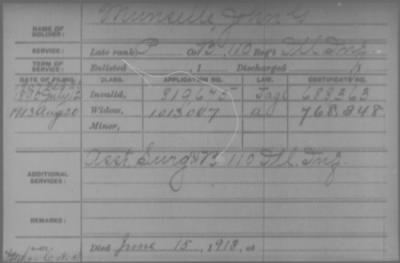 NAME OF SOLDIER: Munselle John G
SERVICE: Late rank P Co. B, 110 Reg't Ill. Inf.
TERM OF SERVICE: Enlisted , 1 Discharged , 1
DATE OF FILING. CLASS. APPLICATION NO. LAW. CERTIFICATE NO.
1890 July 12 Invalid, 812645 688263
1913 Aug 20 Widow, 1013047 768248
Minor,
ADDITIONAL SERVICES: Asst. Surg 110 Ill. Inf.
REMARKS:
Died June 15, 1913, at